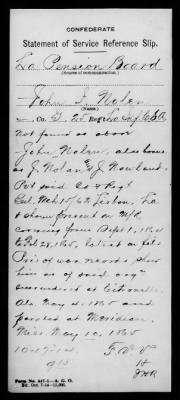 CONFEDERATE
Statement of Service Reference Slip.
La Pension Board
(Source of communication.)
John J. Nolen
(Name.)
Co. G, 25 Reg't La Inf C.S.A.
not found as above
John Nolan, also borne
as J. Nolan & J. Nowland
Pvt said Co & Regt
Enl. Mch 15/62 Lisbon, La
is shown present on M/R
covering from Sept 1, 1864
to Feb 28, 1865, latest on file
Pris of war records show
him as of said orgn
surrendered at Citronelle
Ala May 4, 1865 and
paroled at Meridian,
Miss. May 10, 1865
915
Form No. 447-1—A. G. O.